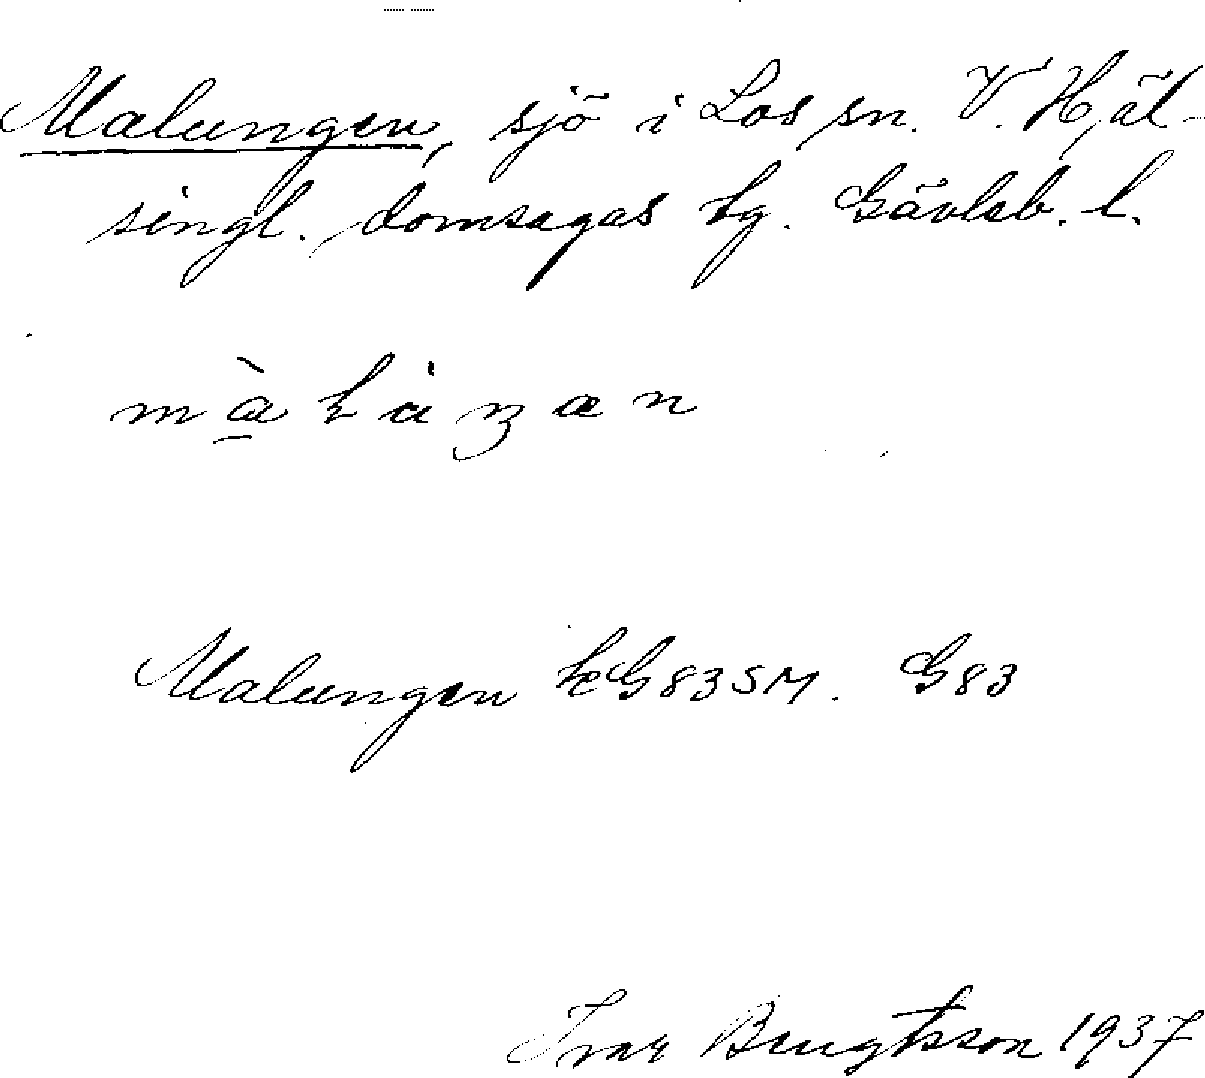 Malungen, sjö i Los sn. V. Häl-
singl. domsagas tg. Gävleb. l.
Malungen kG83SM. G83
Ivar Bengtsson 1937